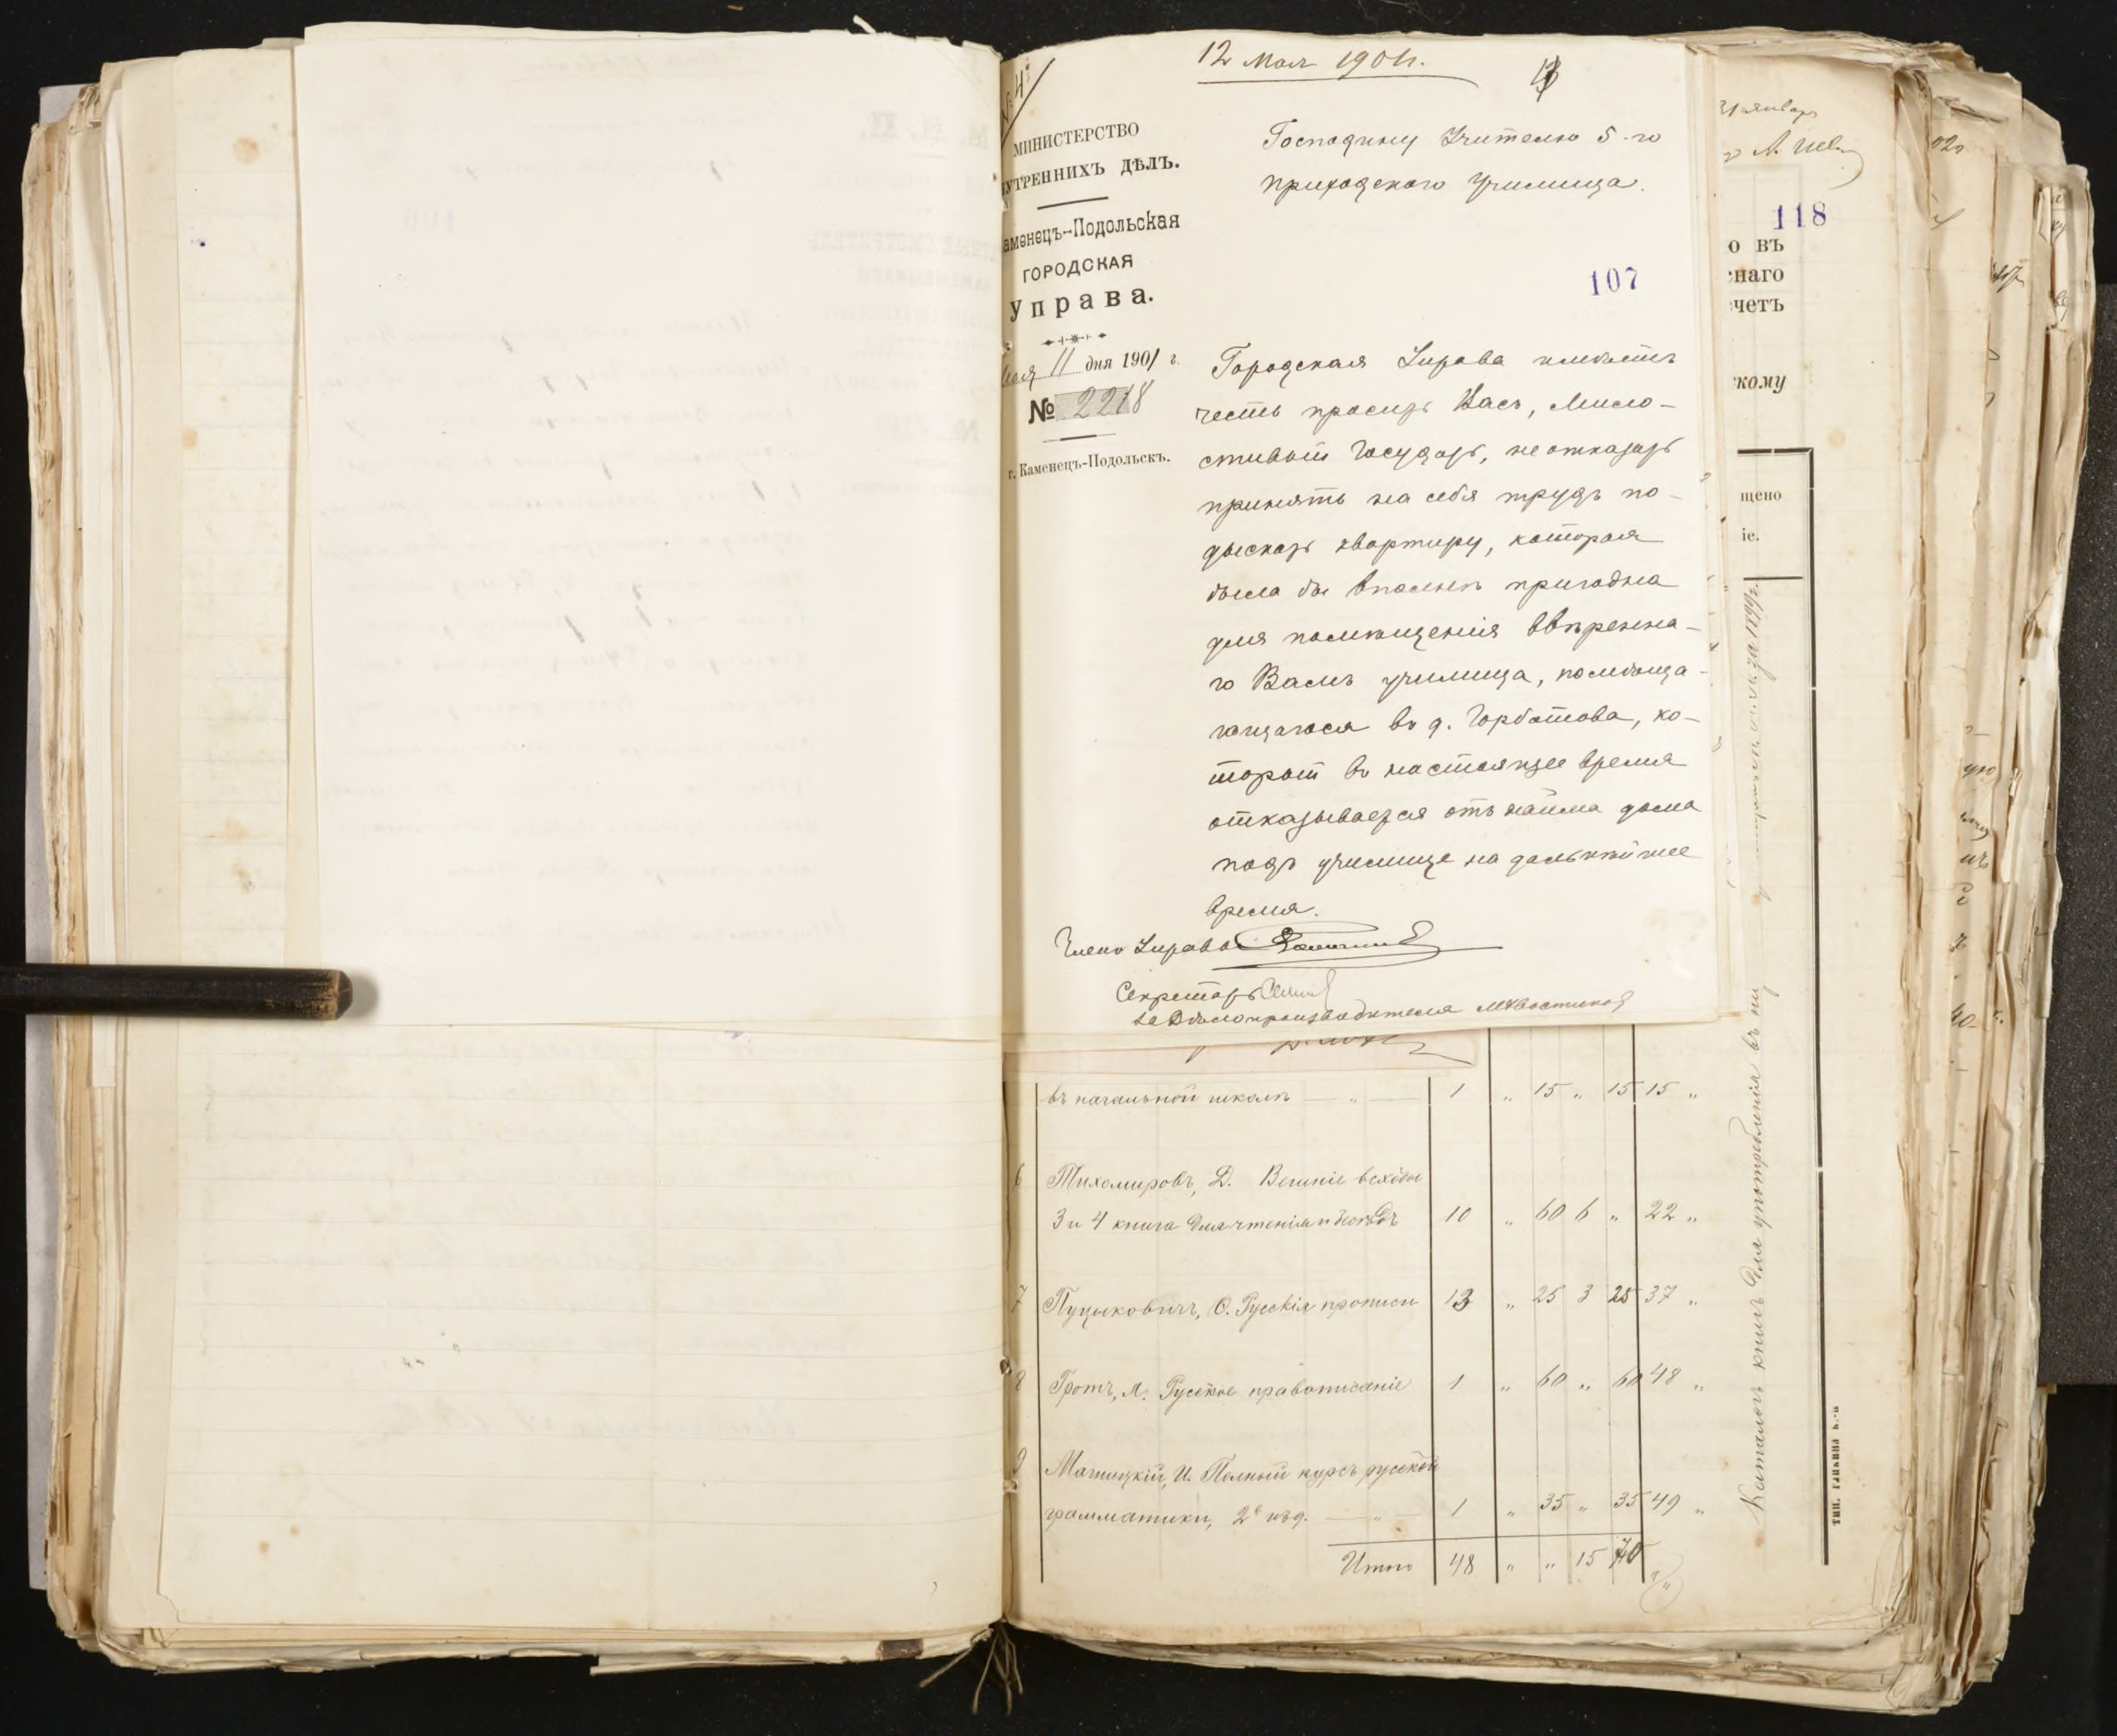 12 Мая 1901 г.
МИНИСТЕРСТВО
УТРЕННИХЪ ДѢЛЪ.
аменецъ-Подольская
ГОРОДСКАЯ
Управа.
Мая 11 дня 1901 г.
№ 2218
г. Каменецъ-Подольскъ.
Господину Учителю 5-го
приходскаго училища.
107
Городская Управа имѣетъ
честь просить Васъ, Мило-
стивый Государь, не отказать
принять на себя трудъ по-
дыскать квартиру, которая
была бы вполнѣ пригодна
для помѣщенія ввѣренна-
го Вамъ училища, помѣща-
ющагося въ д. Горбатова, ко-
торый въ настоящее время
отказывается отъ найма дома
подъ училище на дальнѣйшее
время.
Членъ Управы
Секретарь
За Дѣлопроизводителя
въ начальной школѣ — „ — 1 „ 15 „ 15 15 „
6 Тихомировъ, Д. Вешніе всходы
3 и 4 книга для чтенія и бесѣдъ 10 „ 60 6 „ 22 „
7 Пуцыковичъ, Ѳ. Русскія прописи 13 „ 25 3 25 37 „
8 Гротъ, Я. Русское правописаніе 1 „ 60 „ 60 48 „
9 Магницкій, И. Полный курсъ русской
грамматики, 2е изд. — „ — 1 „ 35 „ 35 49 „
Итого 48 „ „ 15 70 „
31 января
118
о въ
наго
четъ
кому
щено
іе.
за 1899 г.
Каталогъ книгъ для употребленія въ
тип.